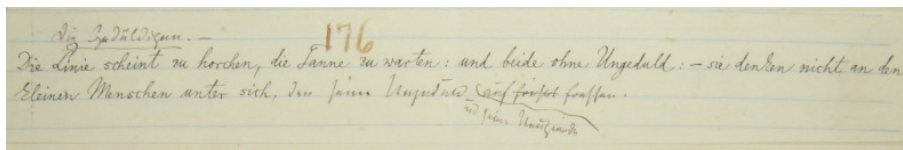 Die Geduldigen. —
176
Die Linie scheint zu horchen, die Tanne zu warten: und beide ohne Ungeduld: — sie denken nicht an den
kleinen Menschen unter sich, den seine Ungeduld auffrißt fressen.
und seine Neugierde